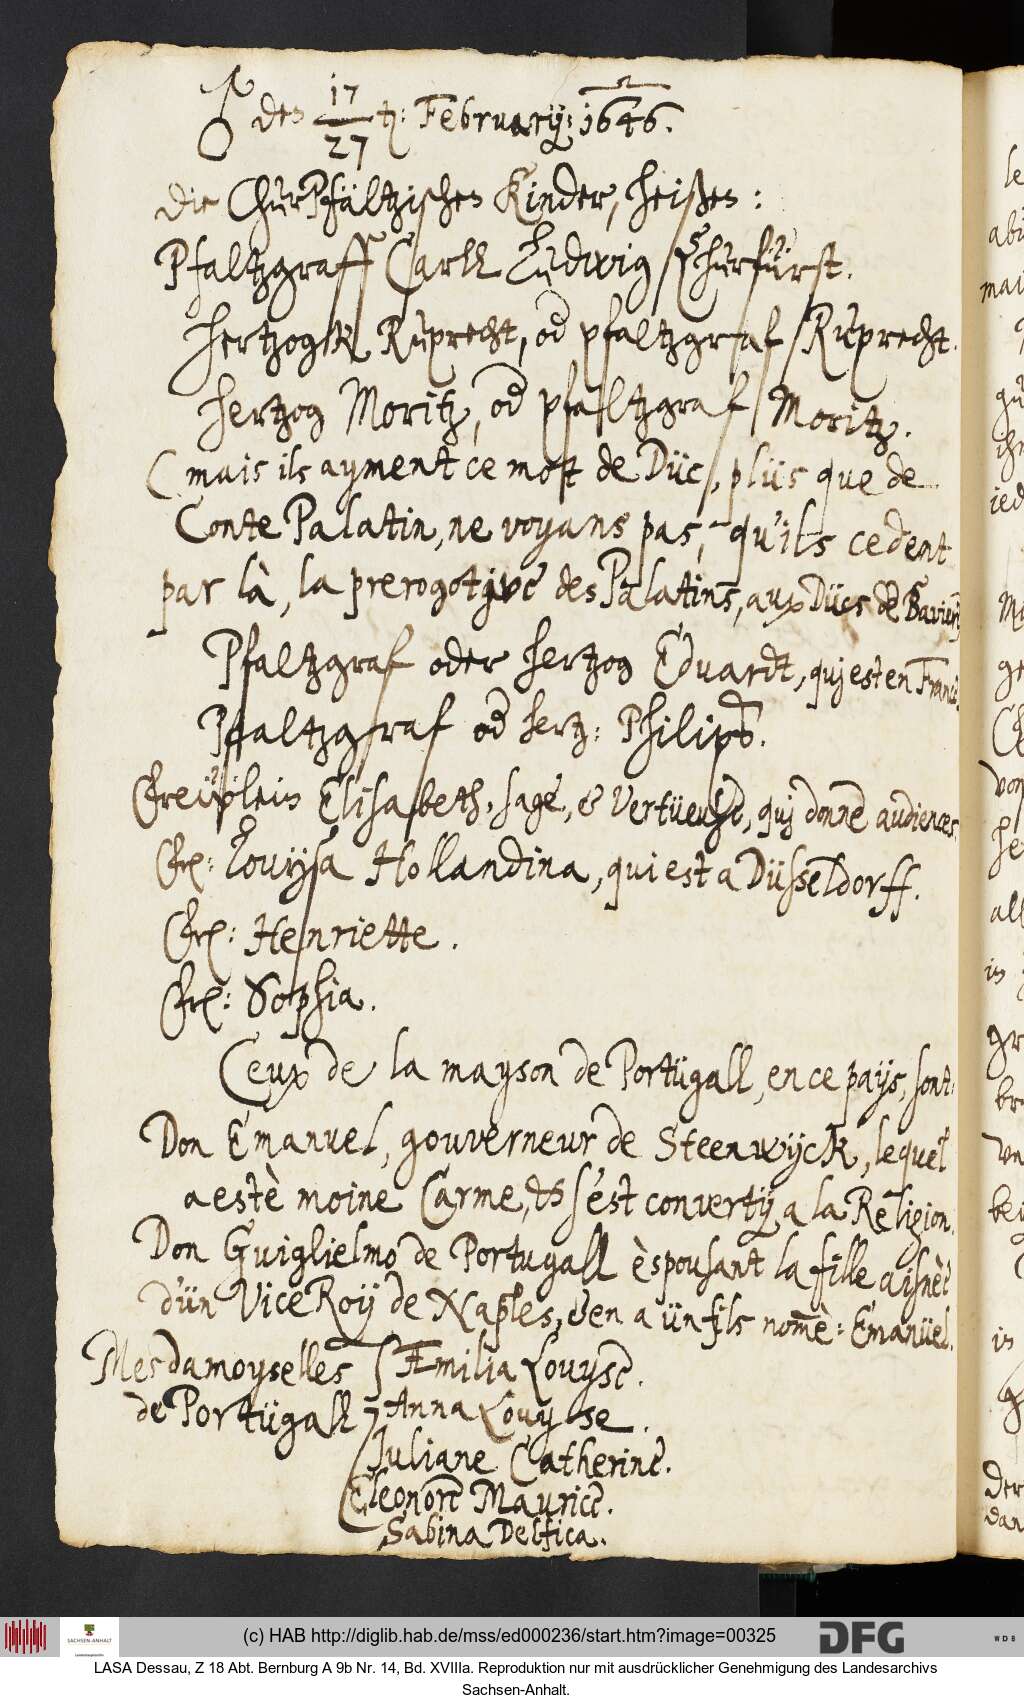 ♂ den 17/27 t: February: 1646.
Die ChurPfältzischen Kinder, heißen:
Pfaltzgraff Carll Ludwig Churfürst.
Hertzogk Ruprecht, od Pfaltzgraf Ruprecht.
Hertzog Moritz, od Pfaltzgraf Moritz.
(mais ils ayment ce mot de Düc, plüs que de
Conte Palatin, ne voyans pas, qu'ils cedent
par là, la prerogotive des Palatins, aux Dücs de Baviere)
Pfaltzgraf oder Hertzog Eduardt, quj est en France.
Pfaltzgraf od Hertz: Philips.
Freẅlein Elisabeth, sage, & vertüeuse, quj donne audiences.
Frl: Louysa Hollandina, qui est a Düsseldorff.
Frl: Henriette.
Frl: Sophia.
Ceux de la mayson de Portügall, en ce paÿs, sont:
Don Emanuel, gouverneur de Steenwÿck, lequel
a estè moine Carme, & s'est convertÿ a la Religion.
Don Guiglielmo de Portugall èspousant la fille aisnèe
d'ün Vice Roÿ de Naples, & en a ün fils nom̄è: Emanüel.
Mesdamoyselles { Æmilia Louyse.
de Portügall Anna Louyse.
Juliane Catherine.
Eleonore Maurice.
Sabina Delfica.
le
abi
mai
gü
ihr
ied
gr
von
he
all
in
gr
bre
vn
bei
in
der
dan
(c) HAB http://diglib.hab.de/mss/ed000236/start.htm?image=00325
SACHSEN-ANHALT
DFG
WDB
LASA Dessau, Z 18 Abt. Bernburg A 9b Nr. 14, Bd. XVIIIa. Reproduktion nur mit ausdrücklicher Genehmigung des Landesarchivs
Sachsen-Anhalt.